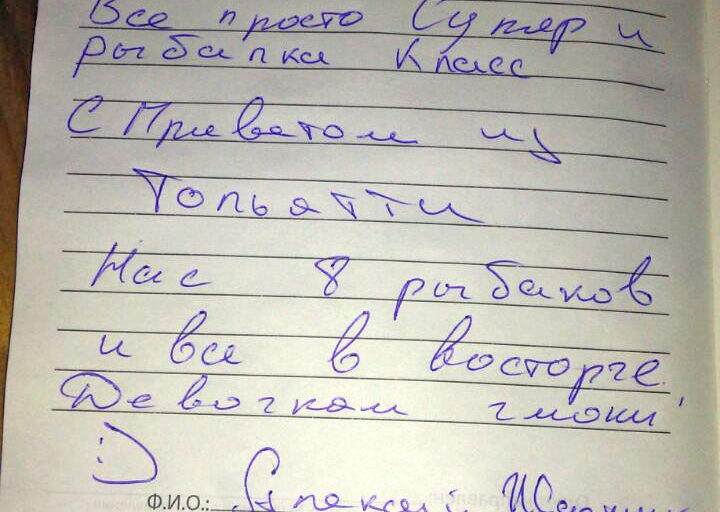 Все просто Супер и
рыбалка Класс
С Приветом из
Тольятти
Нас 8 рыбаков
и все в восторге.
Девочкам чмоки
:D
Ф.И.О.: Алексей